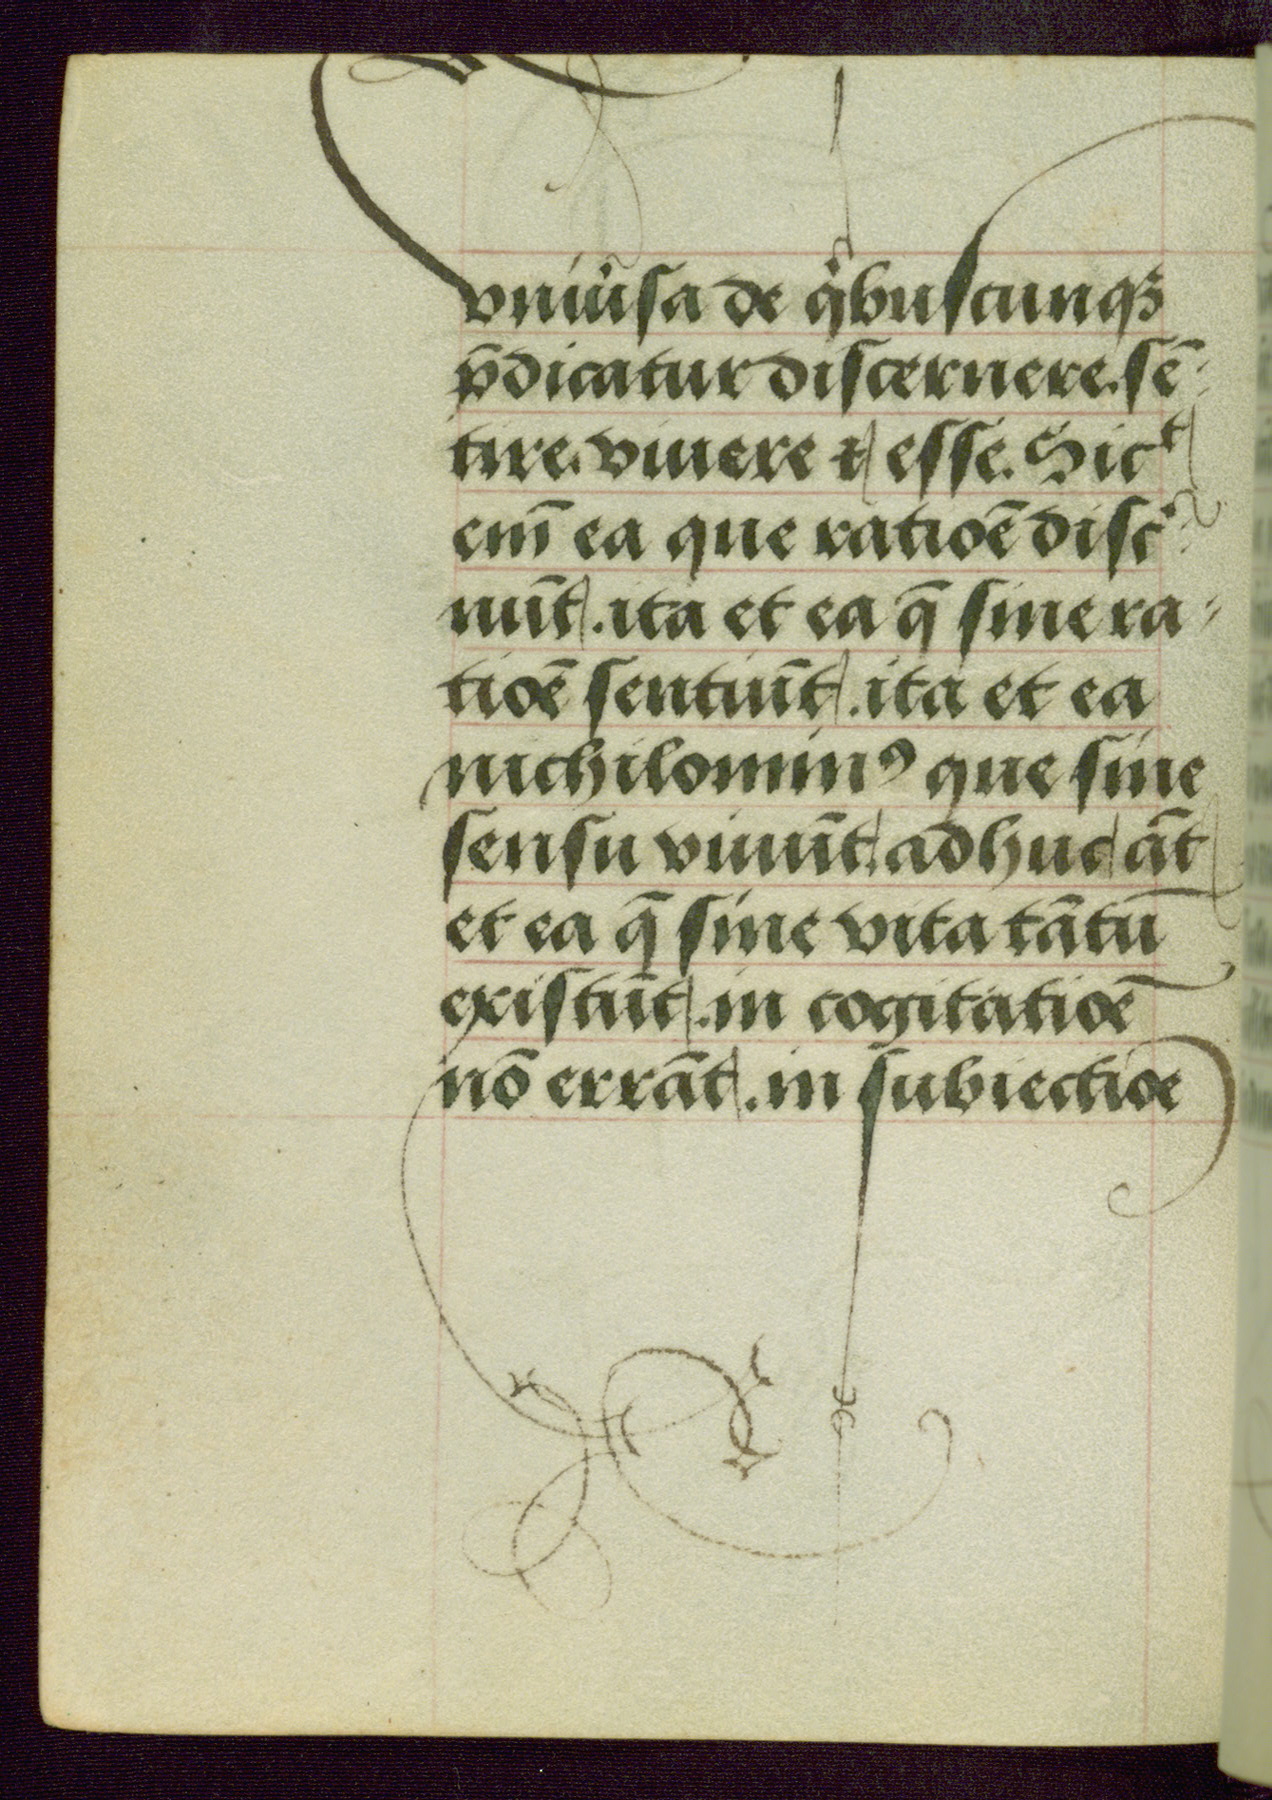 vniu̾sa de qͥbuscunqꝫ
p̄dicatur discernere. sē⸗
tire. viuere ⁊ esse. Sicͭ
em̄ ea que ratioē disc̾⸗
nūt. ita et ea q̄ sine ra⸗
tioē sentiūt. ita et ea
nichilominꝰ que sine
sensu viuūt. adhuc āt
et ea q̄ sine vita tātū
existūt. in cogitatioē
nō errāt. in subiectioe